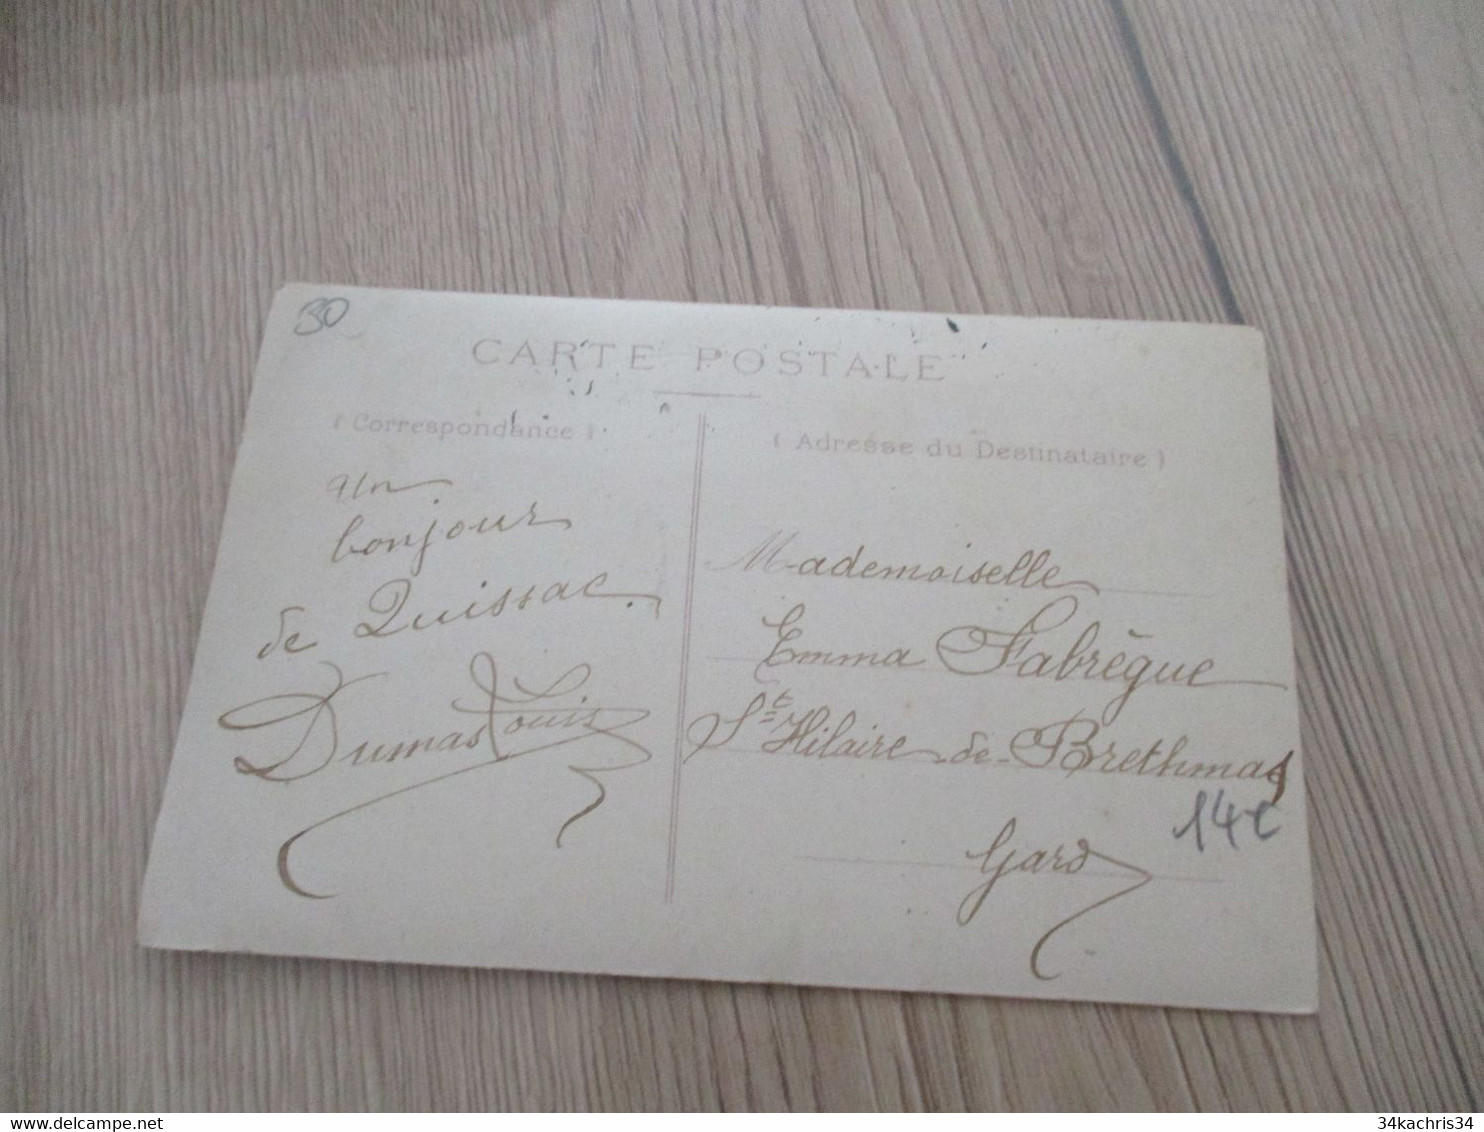 30
CARTE POSTALE
( Correspondance )
un
bonjour
de Quissac.
Dumas Louis
( Adresse du Destinataire )
Mademoiselle
Emma Fabrègue
St Hilaire-de-Brethmas
14€
Gard
34kachris34